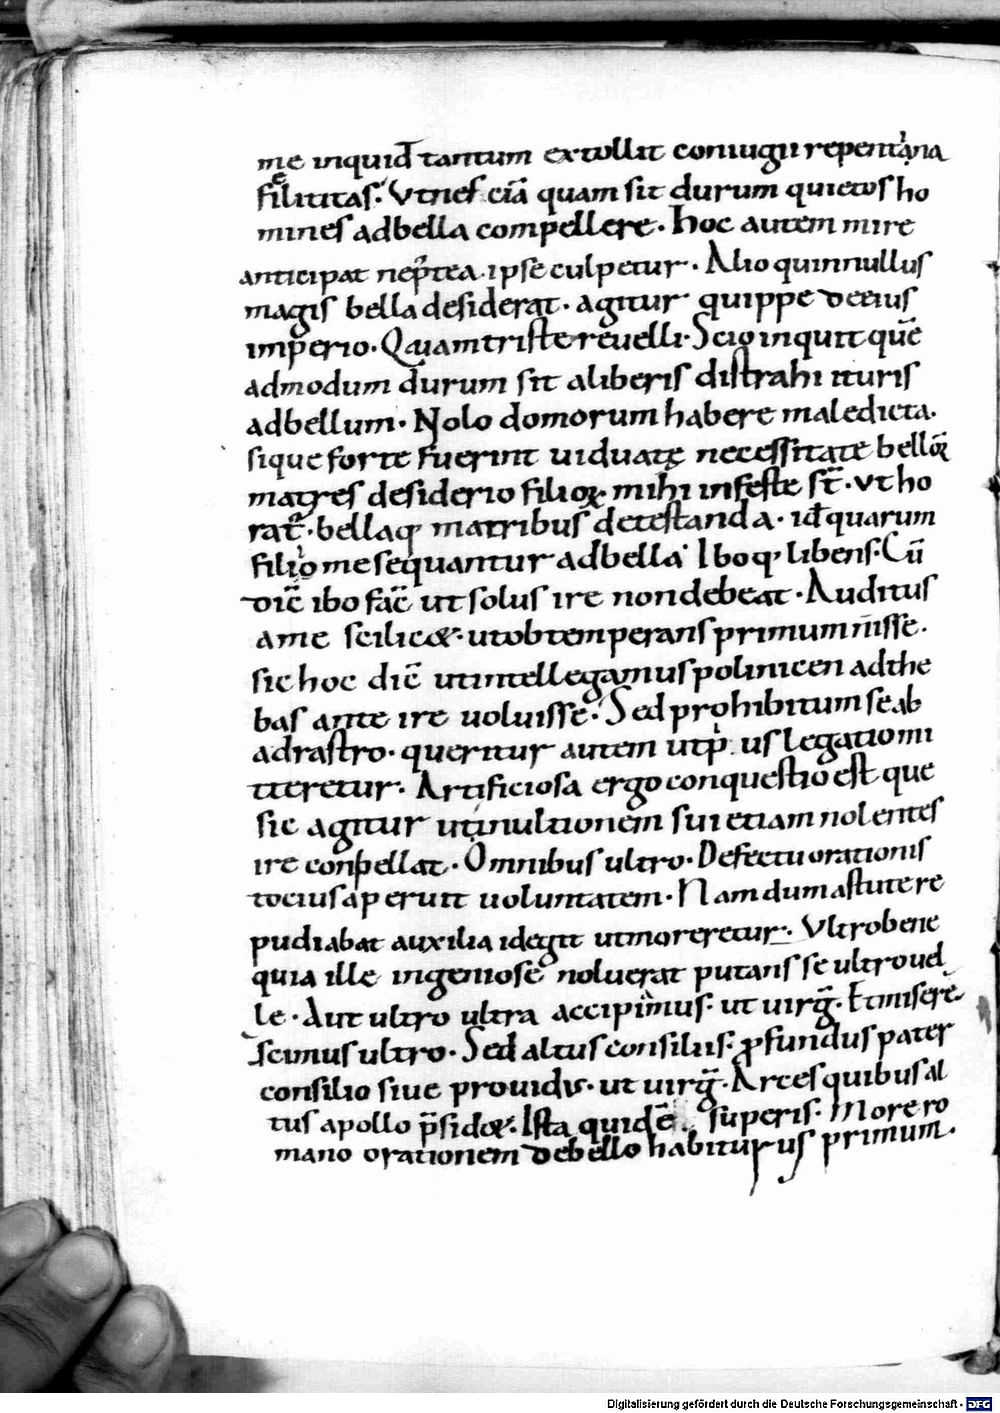 me inquid tantum extollit coniugii repentina
felititas. Vt nesciā quam sit durum quietos ho
mines ad bella compellere. hoc autem mire
anticipat ipse culpetur. Alio qui nnullus
magis bella desiderat. agitur quippe de eius
imperio. Quam triste reuelli. Scio inquit quē
admodum durum sit a liberis distrahi ituris
ad bellum. Nolo domorum habere maledicta.
sique forte fuerint uiduatę necessitate bellorꝝ
matres desiderio filioꝝ mihi infeste st̄. vt ho
rat̄. bellaqꝫ matribus detestanda. id quarum
filii me sequantur ad bella. Iboqꝫ libens. Cū
dic̄ ibo fac̄ ut solus ire non debeat. Auditus
a me scilic&. ut obtemperans primum misse.
sic hoc dic̄ ut intellegamus polinicen ad the
bas ante ire uoluisse. Sed prohibitum se ab
adrastro. queritur autem ut us legatio mi
tteretur. Artificiosa ergo conquestio est que
sic agitur ut in ultionem sui etiam nolentes
ire conpellat. Omnibus ultro. Defectu orationis
tocius aperuit uoluntatem. Nam dum astute re
pudiabat auxilia id egit ut moreretur. Vltro bene
quia ille ingeniose noluerat putans se ultro uel
le. Aut ultro ultra accipimus. ut uirḡ. Et miserē
scimus ultro. Sed altus consiliis. ꝓfundus pater
consilio siue prouidus. ut uirḡ. Arces quibus al
tus apollo p̄sid&. Ista quidē superis. More ro
mano orationem de bello habiturus primum.
Digitalisierung gefördert durch die Deutsche Forschungsgemeinschaft - DFG